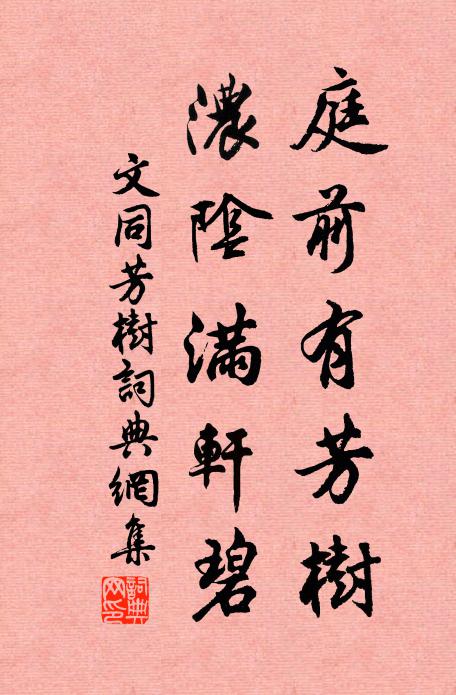 庭前有芳樹
濃陰滿軒碧
文同芳樹詞典網集
詞典網印